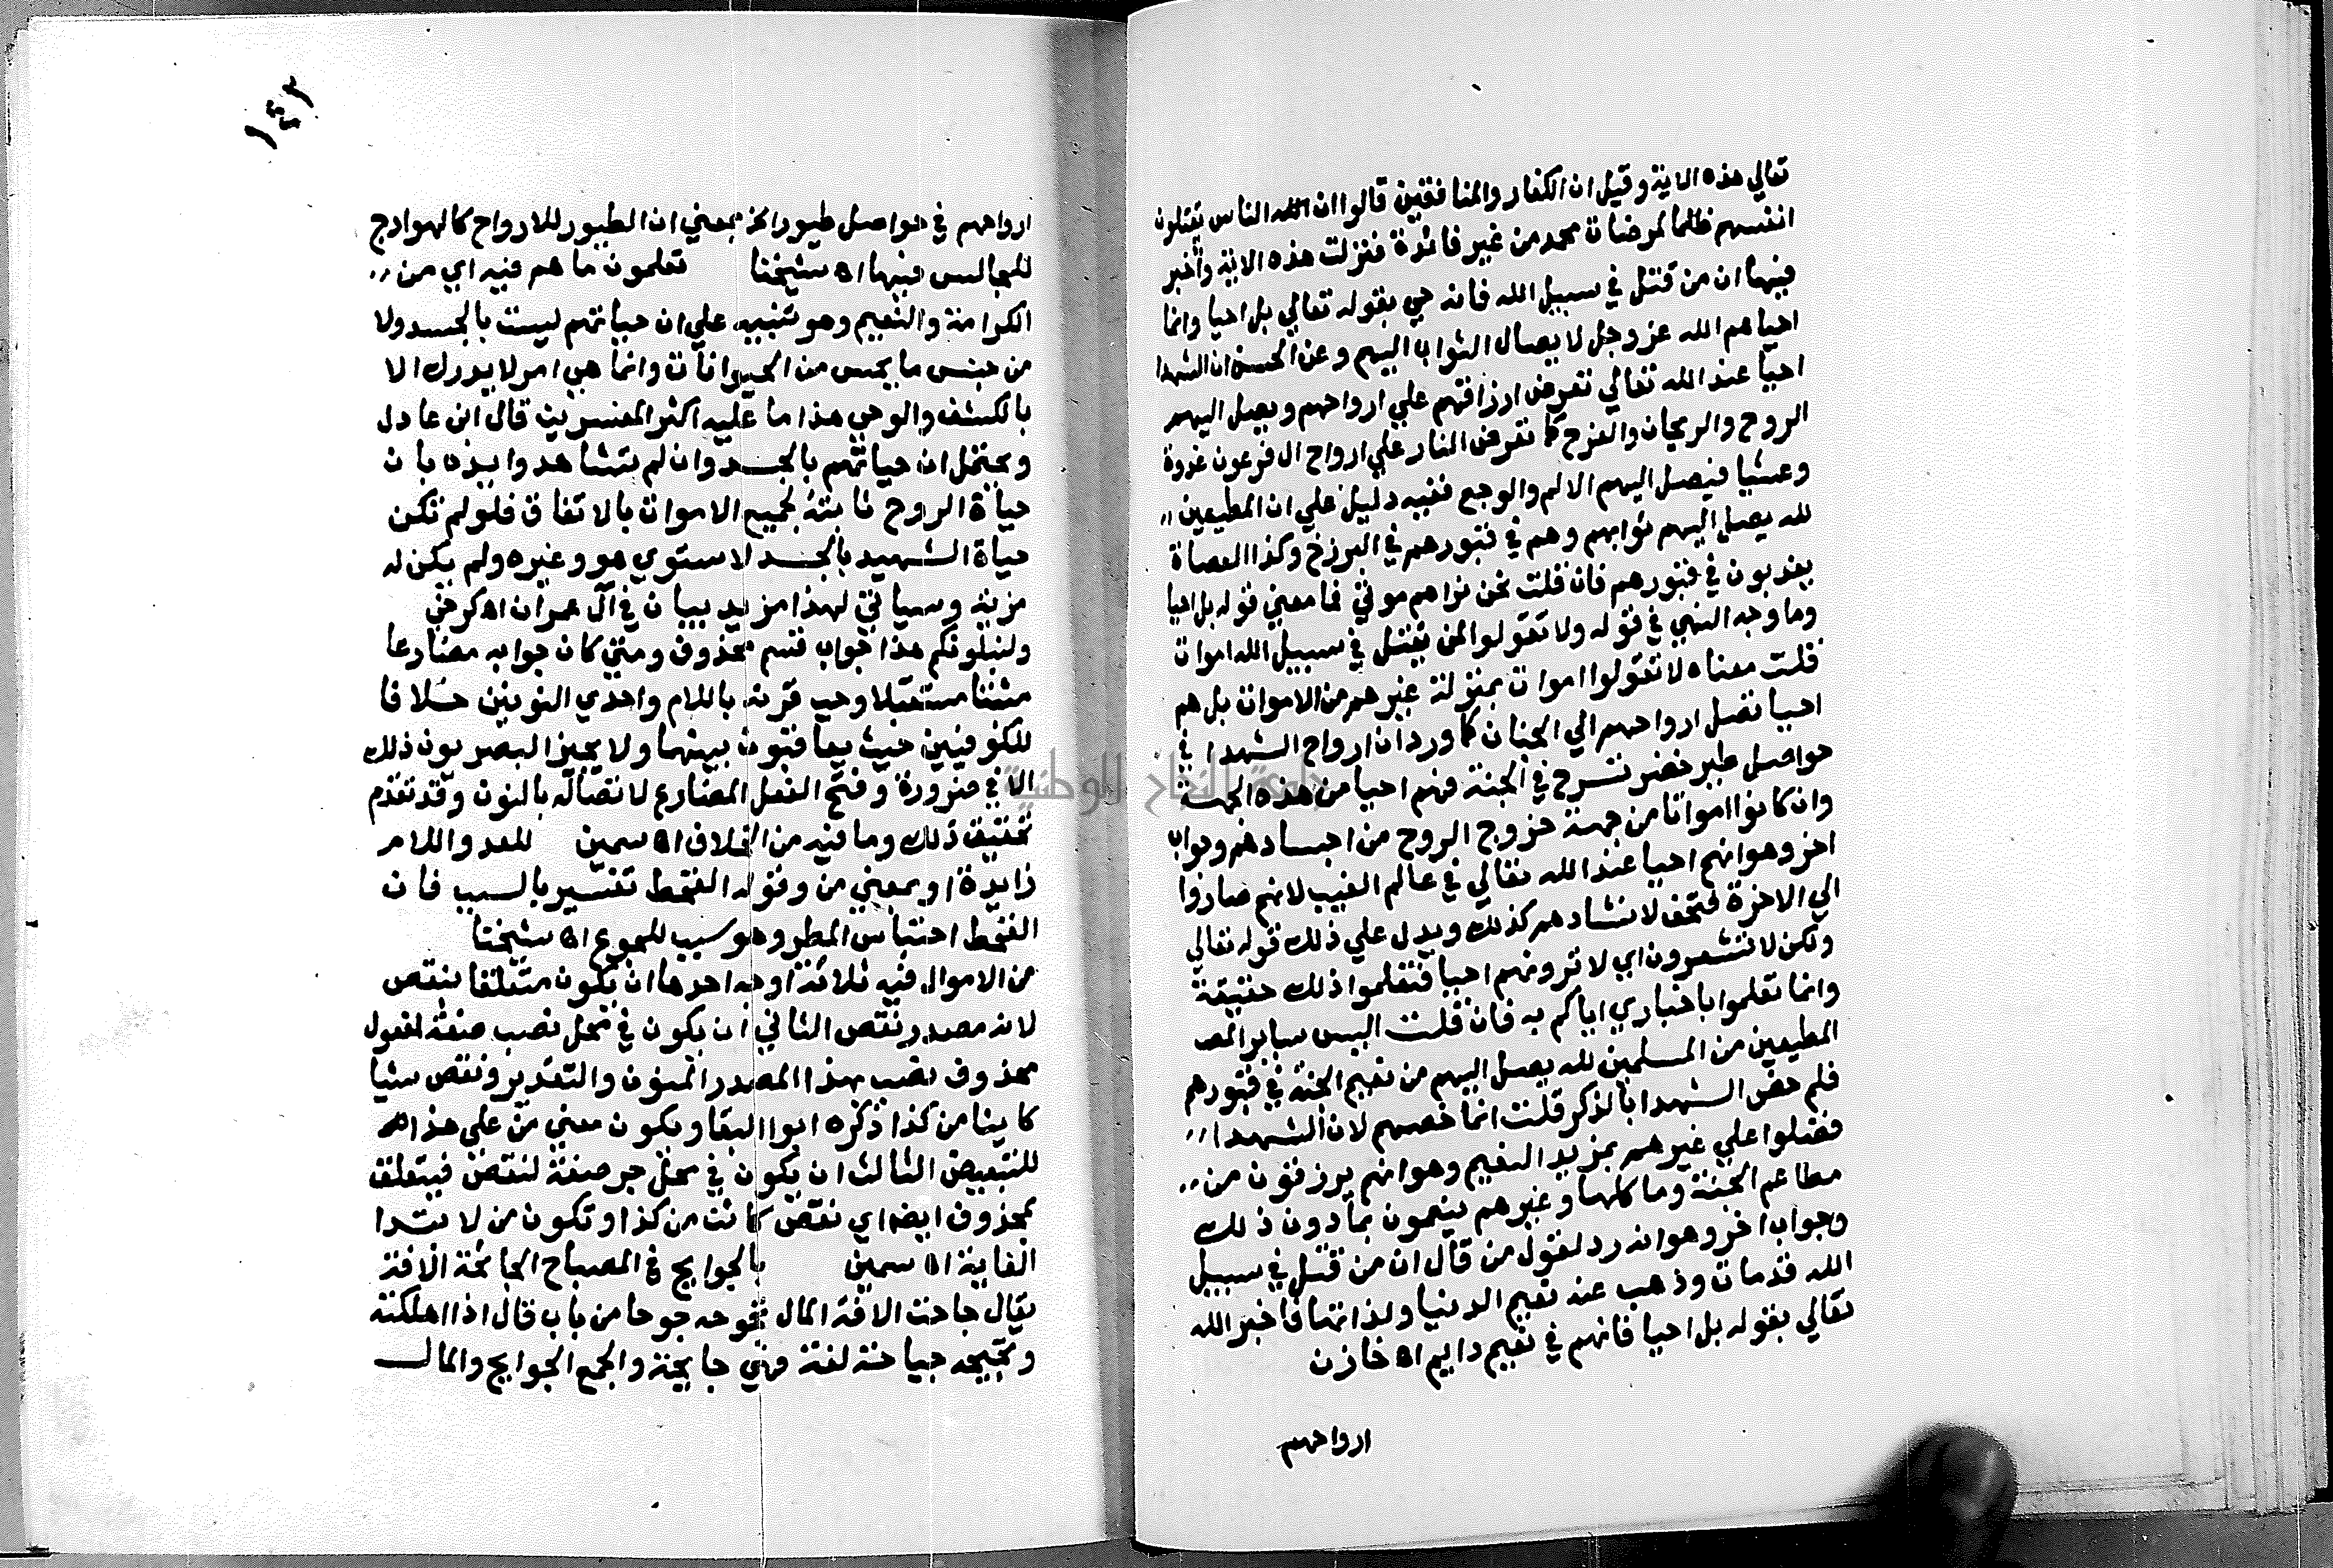 تعالي هذه الاية وقيل ان الكفار والمنافقين قالوا ان الناس يقتلون
انفسهم ظلما لمرضات محمد من غير فائدة فنزلت هذه الاية واخبر
فيها ان من قتل في سبيل الله فانه حي بقوله تعالي بل احيا وانما
احياهم الله عز وجل لايصال الثواب اليهم وعن الحسن ان الشهدا
احيا عند الله تعالي تعرض ارزاقهم علي ارواحهم ويصل اليهم
الروح والريحان والفرح كما تعرض النار علي ارواح ال فرعون غدوة
وعشيا فيصل اليهم الالم والوجع ففيه دليل علي ان المطيعين
لله يصل اليهم ثوابهم وهم في قبورهم في البرزخ وكذا العصاة
يعذبون في قبورهم فان قلت نحن نراهم موتي فما معني قوله بل احيا
وما وجه النهي في قوله ولا تقولوا لمن يقتل في سبيل الله اموات
قلت معناه لا تقولوا اموات بمنزلة غيرهم من الاموات بل هم
احيا تصل ارواحهم الي الجنان كما ورد ان ارواح الشهدا في
حواصل طير خضر تسرح في الجنة فهم احيا من هذه الجهة
وان كانوا امواتا من جهة خروج الروح من اجسادهم وجواب
اخر وهو انهم احيا عند الله تعالي في عالم الغيب لانهم صاروا
الي الاخرة فنحن لا نشاهدهم كذلك ويدل علي ذلك قوله تعالي
ولكن لا تشعرون اي لا ترونهم احيا فتعلموا ذلك حقيقة
وانما تعلموا باخباري اياكم به فان قلت اليس ساير المص
المطيعين من المسلمين لله يصل اليهم من نعيم الجنة في قبورهم
فلم خص الشهدا بالذكر قلت انما خصهم لان الشهدا
فضلوا علي غيرهم بمزيد النعيم وهو انهم يرزقون من
مطاعم الجنة وماكلها وغيرهم ينعمون بما دون ذلك
وجواب اخر وهو انه رد لقول من قال ان من قتل في سبيل
الله قد مات وذهب عنه نعيم الدنيا ولذاتها فاخبر الله
تعالي بقوله بل احيا فانهم في نعيم دايم اه خازن
ارواحهم
١٤٢
ارواحهم في حواصل طيور الخ بمعني ان الطيور للارواح كالهوادج
للمجالس فيها اه شيخنا تعلمون ما هم فيه اي من
الكرامة والنعيم وهو تنبيه علي ان حياتهم ليست بالجسد ولا
من جنس ما يحس من الحيوانات وانما هي امر لا يدرك الا
بالكشف والوحي هذا ما عليه اكثر المفسرين قال ابن عادل
ويحتمل ان حياتهم بالجسد وان لم بان
حياة الروح ثابتة لجميع الاموات بالاتفاق فلو لم تكن
حياة الشهيد بالجسد لاستوي هو وغيره ولم يكن له
مزية وسياتي لهذا مزيد بيان في ال عمران اه كرخي
ولنبلونكم هذا جواب قسم محذوف ومتي كان جوابه مضارعا
مثبتا مستقبلا وجب قرنه باللام واحدي النونين خلافا
للكوفيين حيث يعاقبون بينهما ولا يجيز البصريون ذلك
الا في ضرورة وفتح الفعل المضارع لاتصاله بالنون وقد تقدم
تحقيق ذلك وما فيه من الخلاف اه سمين للعدو اللام
زايدة او بمعني من وقوله القحط تفسير بالسبب فان
القحط احتباس المطر وهو سبب للجوع اه شيخنا
من الاموال فيه ثلاثة اوجه احدها ان يكون متعلقا بنقص
لانه مصدر نقص الثاني ان يكون في محل نصب صفة لمفعول
محذوف نصب بهذا المصدر المنون والتقدير ونقص شيا
كاينا من كذا ذكره ابوا البقا ويكون معني من علي هذا
للتبعيض الثالث ان يكون في محل جر صفة لنقص فيتعلق
بمحذوف ايضا اي نقص كائن من كذا وتكون من لابتدا
الغاية اه سمين بالجوايح في المصباح الجائحة الافة
يقال جاحت الافة المال تجوحه جوحا من باب قال اذا اهلكته
وتجيحه جياحة لغة فهي جايحة والجمع الجوايح والمال
جامعة النجاح الوطنية